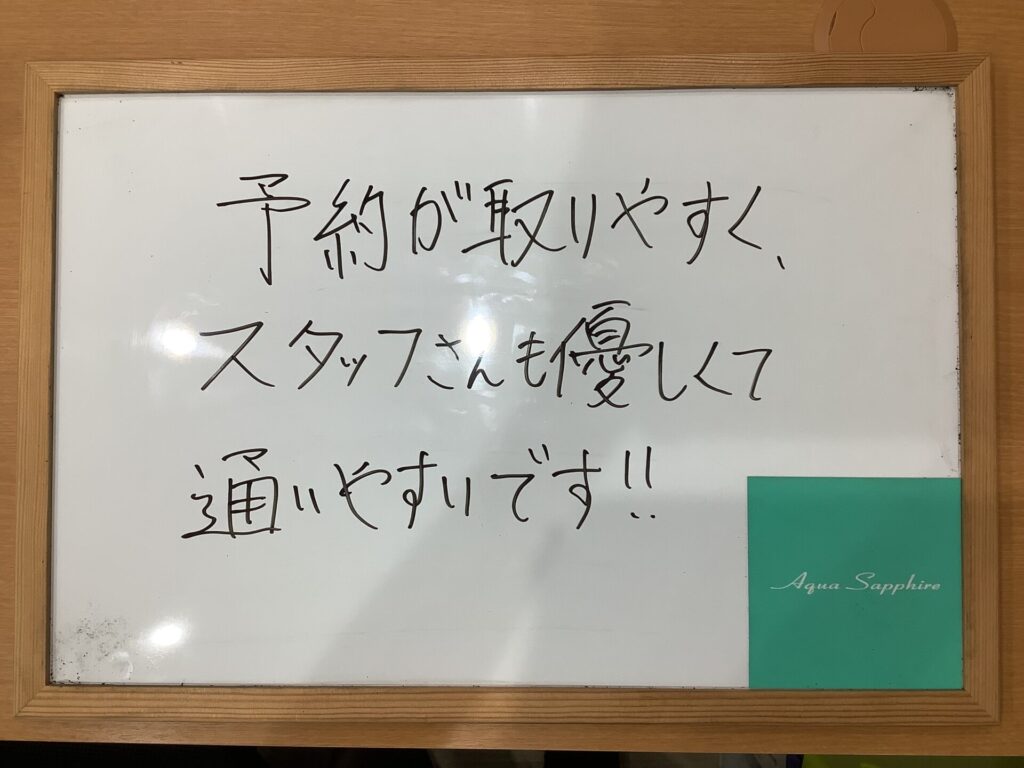 予約が取りやすく、
スタッフさんも優しくて
通いやすいです!!
Aqua Sapphire